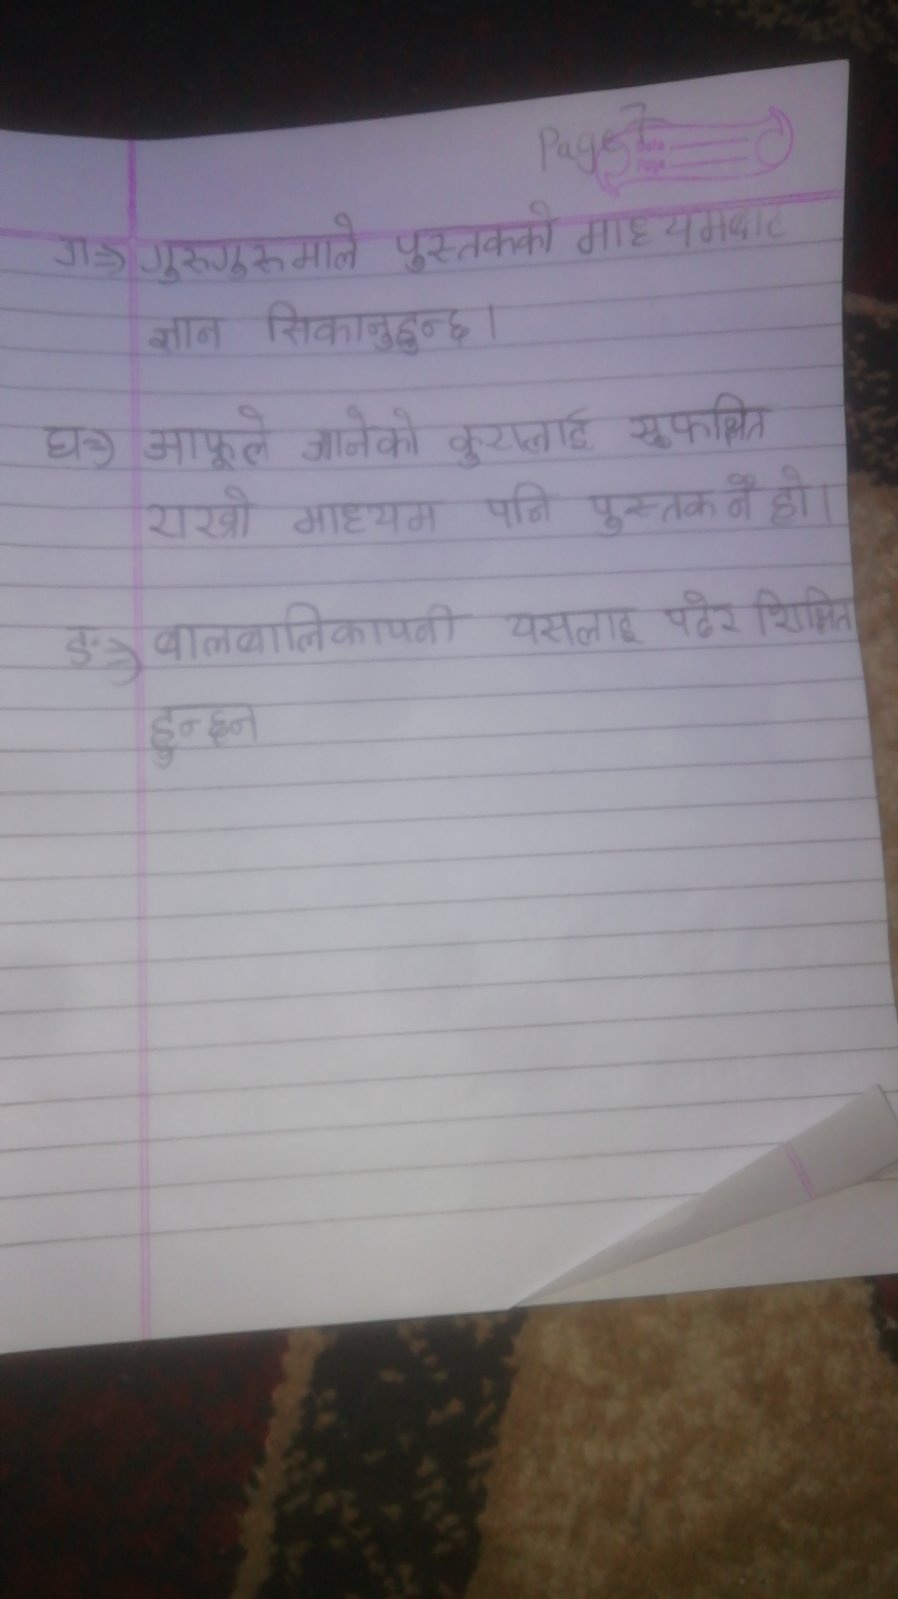 Page 7
Date
Page
ग⇒ गुरुगुरुमाले पुस्तकको माध्यमबाट
ज्ञान सिकानुहुन्छ।
घ⇒ आफूले जानेको कुरालाई सुरक्षित
राख्ने माध्यम पनि पुस्तक नै हो।
ङ⇒ बालबालिकापनी यसलाइ पढेर शिक्षित
हुन्छन